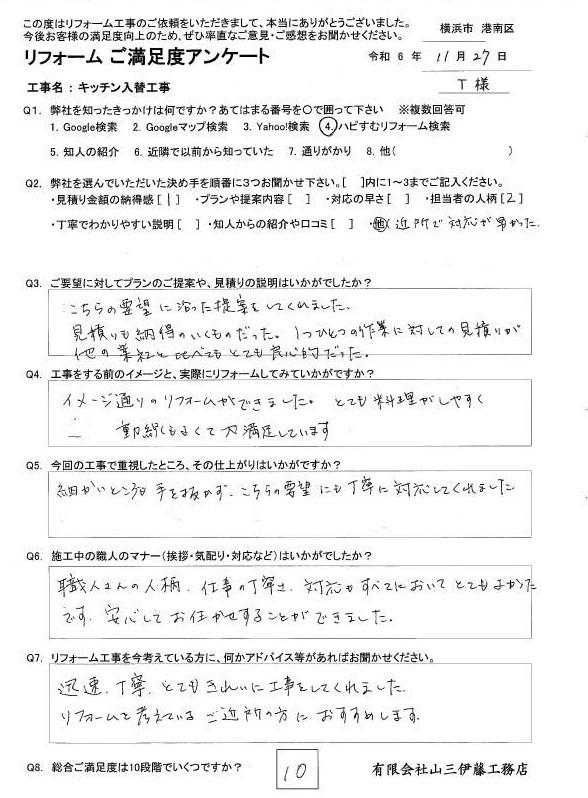 この度はリフォーム工事のご依頼をいただきまして、本当にありがとうございました。
今後お客様の満足度向上のため、ぜひ率直なご意見・ご感想をお聞かせください。
横浜市 港南区
リフォーム ご満足度アンケート
令和 6 年 11/27 日
T 様
工事名：キッチン入替工事
Q1. 弊社を知ったきっかけは何ですか？あてはまる番号を〇で囲って下さい ※複数回答可
1. Google検索 2. Googleマップ検索 3. Yahoo!検索 4. ハピすむリフォーム検索
5. 知人の紹介 6. 近隣で以前から知っていた 7. 通りがかり 8. 他( )
Q2. 弊社を選んでいただいた決め手を順番に3つお聞かせ下さい。[ ]内に1～3までご記入ください。
・見積り金額の納得感[ 1 ] ・プランや提案内容[ ] ・対応の早さ[ ] ・担当者の人柄[ 2 ]
・丁寧でわかりやすい説明[ ] ・知人からの紹介や口コミ[ ] ・他( 近所で対応が早かった.
Q3. ご要望に対してプランのご提案や、見積りの説明はいかがでしたか？
こちらの要望に沿った提案をしてくれました.
見積りも納得のいくものだった。1つひとつの作業に対しての見積りが
他の業社と比べてもとても良心的だった。
Q4. 工事をする前のイメージと、実際にリフォームしてみていかがですか？
イメージ通りのリフォームができました。とても料理がしやすく
動線もよくて大満足しています
Q5. 今回の工事で重視したところ、その仕上がりはいかがですか？
細かいところも手を抜かず、こちらの要望にも丁寧に対応してくれました
Q6. 施工中の職人のマナー（挨拶・気配り・対応など）はいかがでしたか？
職人さんの人柄、仕事の丁寧さ、対応もすべてにおいてとてもよかった
です. 安心してお任せすることができました.
Q7. リフォーム工事を今考えている方に、何かアドバイス等があればお聞かせください。
迅速、丁寧、とてもきれいに工事をしてくれました.
リフォームを考えているご近所の方におすすめします.
Q8. 総合ご満足度は10段階でいくつですか？
10
有限会社山三伊藤工務店